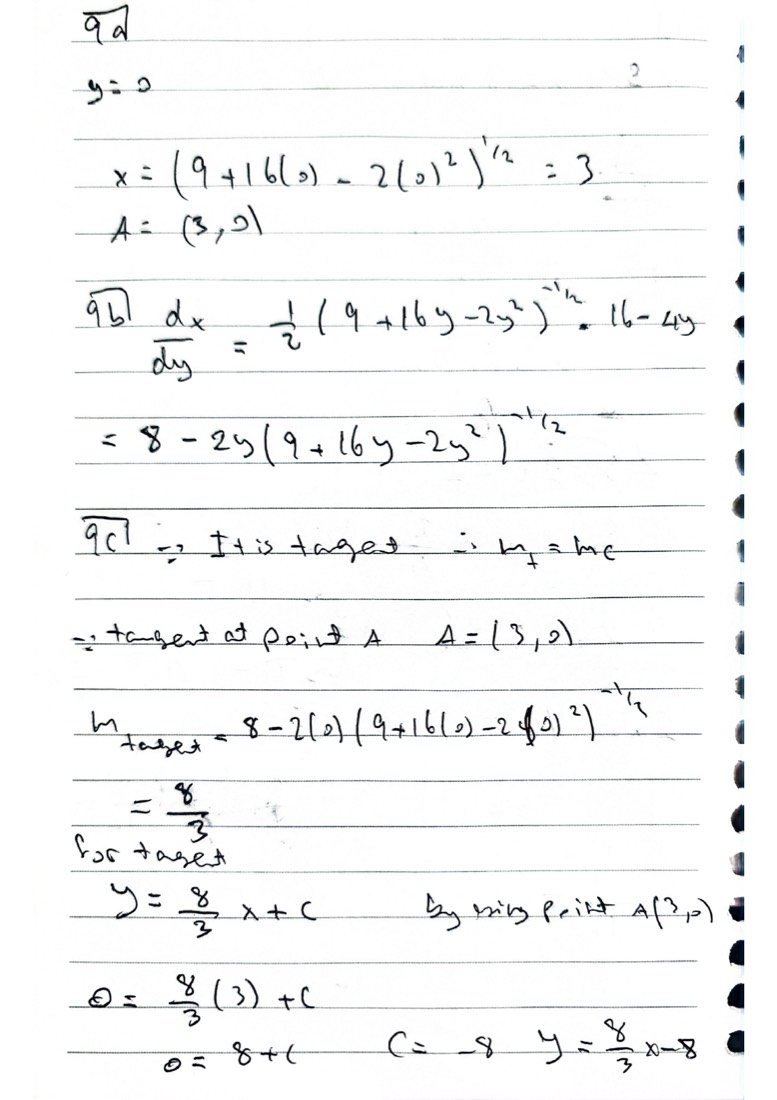 9a
y = 0
x = (9 + 16(0) - 2(0)²)^1/2 = 3
A = (3, 0)
9b dx/dy = 1/2 (9 + 16y - 2y²)^-1/2 . 16 - 4y
= 8 - 2y (9 + 16y - 2y²)^-1/2
9c ∵ It is taget ∴ m_t = mc
∵ tangent at point A A = (3, 0)
m_taget = 8 - 2(0) (9 + 16(0) - 2(0)²)^-1/2
= 8/3
for taget
y = 8/3 x + C by using point A(3, 0)
0 = 8/3 (3) + C
0 = 8 + C C = -8 y = 8/3 x - 8